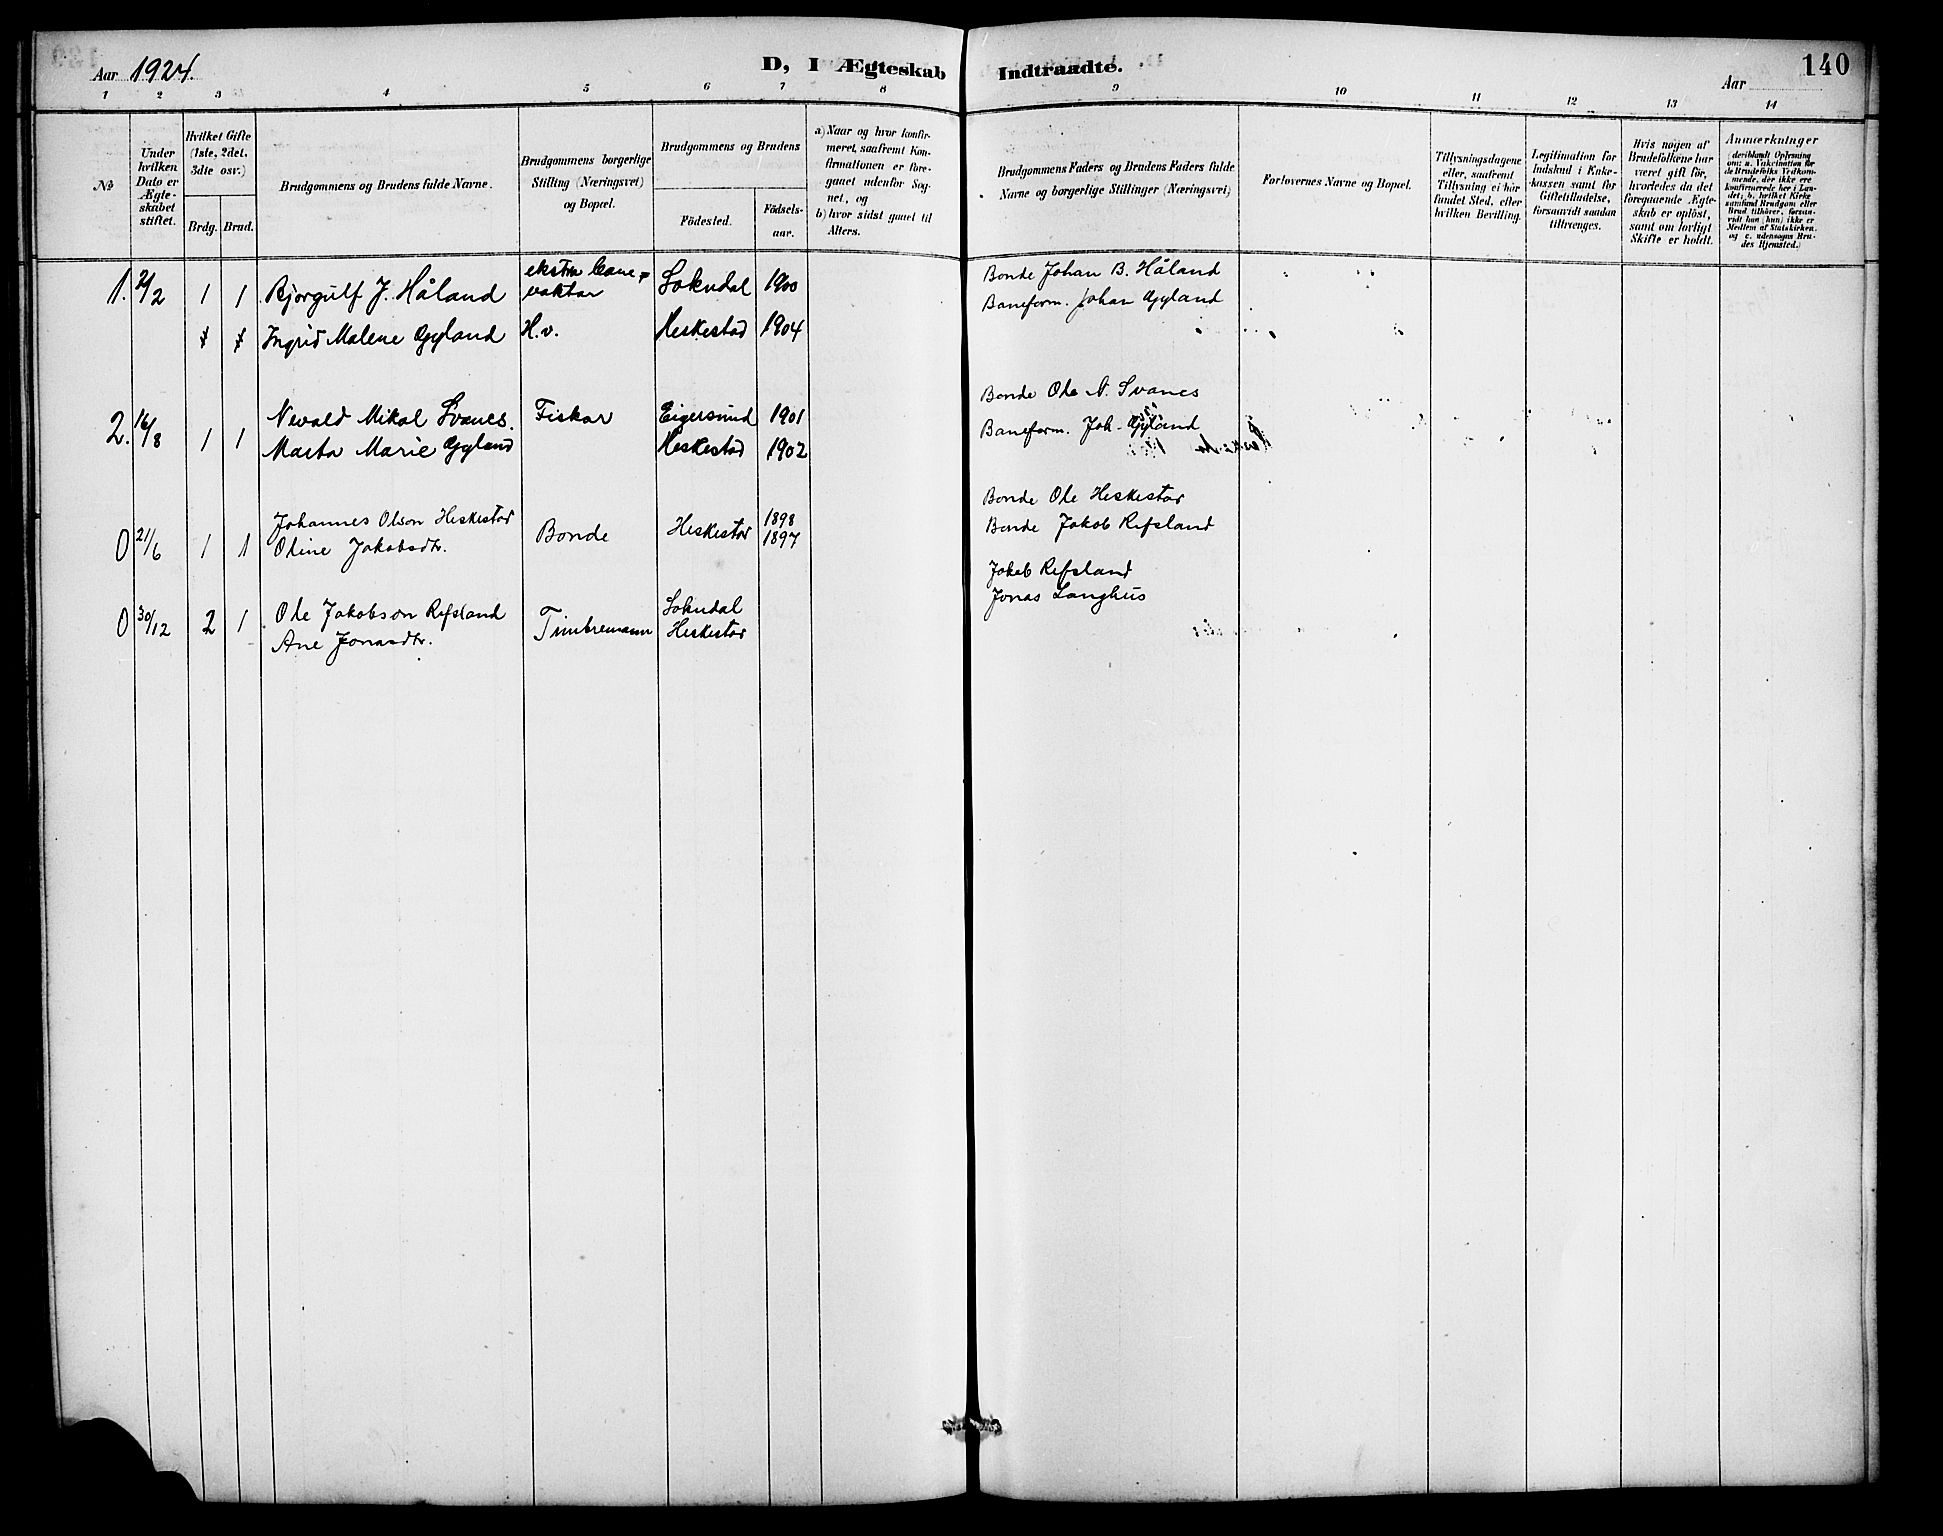 Aar 1924.
D, I Ægteskab Indtraadte.
Aar
140
1 2 3 4 5 6 7 8 9 10 11 12 13 14
No
Under hvilken Dato er Ægteskabet stiftet.
Hvilket Gifte (1ste, 2det, 3dte osv.)
Brdg. Brud.
Brudgommens og Brudens fulde Navne.
Brudgommens borgerlige Stilling (Næringsvei) og Bopæl.
Brudgommens og Brudens
Födested.
Födsels-aar.
a) Naar og hvor konfirmeret, saafremt Konfirmationen er foregaaet udenfor Sognet, og
b) hvor sidst gaaet til Alters.
Brudgommens Faders og Brudens Faders fulde Navne og borgerlige Stillinger (Næringsvei)
Forlovernes Navne og Bopæl.
Tillysningsdagene eller, saafremt Tillysning ei har fundet Sted, efter hvilken Bevilling.
Legitimation for Indskud i Enkekassen samt for Giftetilladelse, forsaavidt saadan tiltrænges.
Hvis nogen af Brudefolkene har været gift før, hvorledes da det foregaaende Ægteskab er oplöst, samt om lovligt Skifte er holdt.
Anmærkninger
(deriblandt Oplysning om: a. Vakcination for de Brudefolks Vedkommende, der ikke ere konfirmerede her i Landet; b. hvilket Kirkesamfund Brudgom eller Brud tilhörer, forsaavidt han (hun) ikke er Medlem af Statskirken, og c. udensogns Brudes Hjemsted.)
1. 21/2 1 1 Bjorgulf J. Håland ekstra banevaktar Sokndal 1900 Bonde Johan B. Håland
Ingrid Malene Gyland H.v. Heskestad 1904 Baneform. Johan Gyland
Nevald Mikal Svanes. Fiskar Eigersund 1901 Bonde Ole N. Svanes
2. 16/8 1 1 Marta Marie Gyland Heskestad 1902 Baneform. Joh. Gyland
Johannes Olson Heskestad 1898 Bonde Ole Heskestad
0 21/6 1 1 Oline Jakobsdtr. Bonde Heskestad 1897 Bonde Jakob Refsland
Ole Jakobson Refsland Sokndal Jakob Refsland
0 30/12 2 1 Ane Jonasdtr. Timbremann Heskestad Jonas Langhus